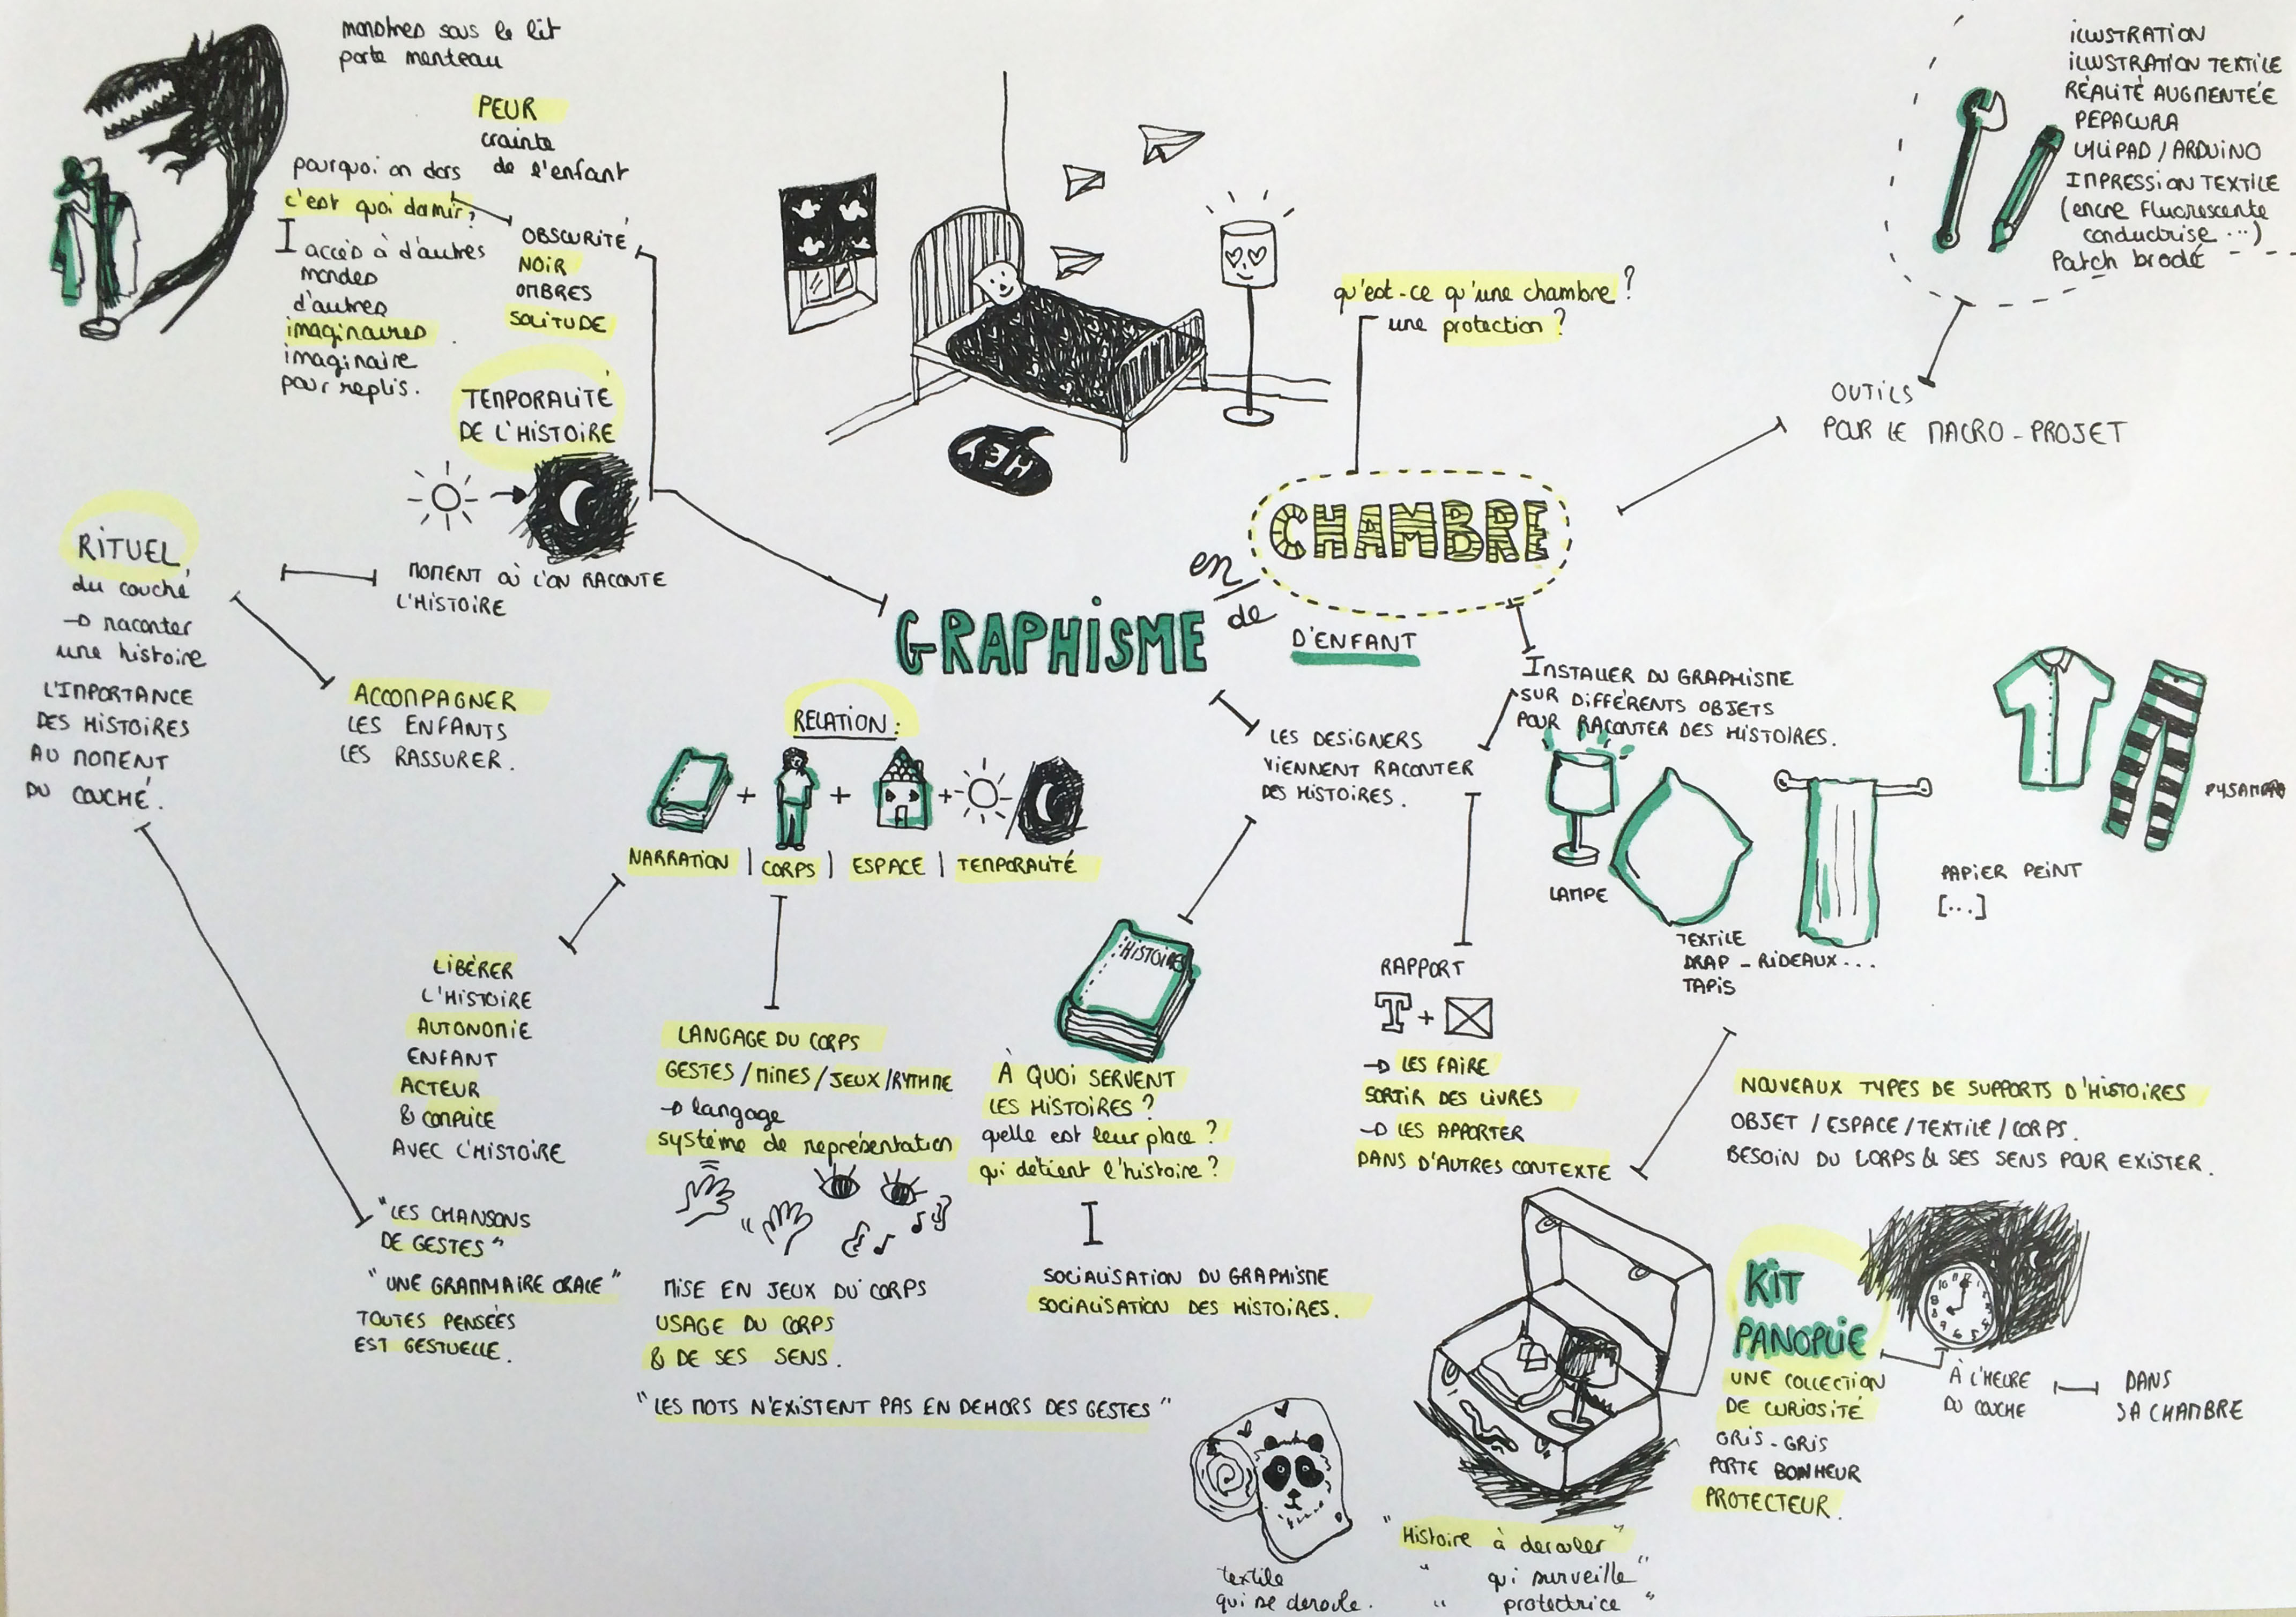 monstres sous le lit
porte manteau
PEUR
crainte
de l'enfant
pourquoi on dors
c'est quoi dormir?
accès à d'autres
mondes
d'autres
imaginaires
imaginaire
pour replis.
OBSCURITÉ
NOIR
OMBRES
SOLITUDE
TEMPORALITÉ
DE L'HISTOIRE
MOMENT OÙ L'ON RACONTE
L'HISTOIRE
RITUEL
du couché
raconter
une histoire
L'IMPORTANCE
DES HISTOIRES
AU MOMENT
DU COUCHÉ.
ACCOMPAGNER
LES ENFANTS
LES RASSURER.
HEY
qu'est-ce qu'une chambre?
une protection?
CHAMBRE
en/de
GRAPHISME
D'ENFANT
ILLUSTRATION
ILLUSTRATION TEXTILE
RÉALITÉ AUGMENTÉE
PEPACURA
LYLIPAD / ARDUINO
IMPRESSION TEXTILE
(encre fluorescente
conductrise ...)
Patch brodé
OUTILS
POUR LE MACRO-PROJET
INSTALLER DU GRAPHISME
SUR DIFFÉRENTS OBJETS
POUR RACONTER DES HISTOIRES.
LES DESIGNERS
VIENNENT RACONTER
DES HISTOIRES.
LAMPE
TEXTILE
DRAP - RIDEAUX...
TAPIS
PAPIER PEINT
[...]
RELATION:
+ + +
NARRATION | CORPS | ESPACE | TEMPORALITÉ
LIBÉRER
L'HISTOIRE
AUTONOMIE
ENFANT
ACTEUR
& COMPLICE
AVEC L'HISTOIRE
LANGAGE DU CORPS
GESTES / MIMES / JEUX / RYTHME
langage
système de représentation
MISE EN JEUX DU CORPS
USAGE DU CORPS
& DE SES SENS.
"LES MOTS N'EXISTENT PAS EN DEHORS DES GESTES"
"LES CHANSONS
DE GESTES"
"UNE GRAMMAIRE ORALE"
TOUTES PENSÉES
EST GESTUELLE.
HISTOIRES
À QUOI SERVENT
LES HISTOIRES?
quelle est leur place?
qui détient l'histoire?
SOCIALISATION DU GRAPHISME
SOCIALISATION DES HISTOIRES.
RAPPORT
T +
LES FAIRE
SORTIR DES LIVRES
LES APPORTER
DANS D'AUTRES CONTEXTE
NOUVEAUX TYPES DE SUPPORTS D'HISTOIRES
OBJET / ESPACE / TEXTILE / CORPS.
BESOIN DU CORPS & SES SENS POUR EXISTER.
KIT
PANOPLIE
UNE COLLECTION
DE CURIOSITÉ
GRIS-GRIS
PORTE BONHEUR
PROTECTEUR.
À L'HEURE
DU COUCHE
DANS
SA CHAMBRE
"Histoire à derouler"
" qui surveille"
" protectrice"
textile
qui se deroule.